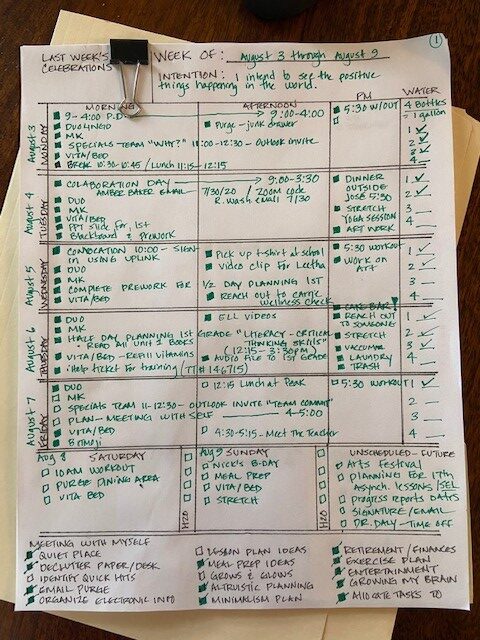 LAST WEEK'S
CELEBRATIONS
WEEK OF: August 3 through August 9
1
INTENTION: I intend to see the positive
things happening in the world.
MORNING
AFTERNOON
PM
WATER
August 3
MONDAY
9-4:00 P.D. 9:00-4:00
DUOLINGO
MK
SPECIALS TEAM "WHY?" 11:00-12:30 - Outlook invite
VITA/BED
BREAK 10:30-10:45 / Lunch 11:15-12:15
Purge - junk drawer
5:30 W/OUT
4 Bottles
1 gallon
1 ✓
2 ✓
3 ✓
4
August 4
TUESDAY
COLABORATION DAY 9:00-3:30
AMBER BAKER EMAIL 7/30/20 / ZOOM code
DUO R. Wash email 7/30
MK
VITA/BED
PPT slide for 1st
Blackband & Prework
DINNER
OUTSIDE
JOSE 5:30
STRETCH
YOGA SESSION
ART WORK
1 ✓
2 ✓
3
4
August 5
WEDNESDAY
CONVOCATION 10:00 - SIGN
in USING UPLINK
DUO
MK
COMPLETE PREWORK FOR 1/2 DAY PLANNING 1ST
VITA/BED
Pick up t-shirt at school
Video clip for Leetha
REACH OUT to Carrie
wellness check
5:30 workout
WORK ON
ART
1 ✓
2
3
4
August 6
THURSDAY
DUO
MK
HALF DAY PLANNING 1st GRADE "LITERACY - CRITICAL
- READ ALL UNIT 1 BOOKS THINKING SKILLS"
(12:15 - 3:30pm)
VITA/BED - REFILL vitamins
Help ticket for training (TT#146715)
ELL VIDEOS
AUDIO FILE to 1st GRADE
CAKE BAR!
REACH OUT
TO SOMEONE
STRETCH
VACCUMM
LAUNDRY
TRASH
1 ✓
2 ✓
3
4
August 7
FRIDAY
DUO
MK
SPECIALS TEAM 11-12:30 - OUTLOOK INVITE "TEAM COMMIT"
PLAN - MEETING WITH SELF 4-5:00
VITA/BED
BITMOJI
12:15 Lunch at Peak
4:30-5:15 - Meet the Teacher
5:30 WORKOUT
1 ✓
2
3
4
Aug 8 SATURDAY
10AM WORKOUT
PURGE DINING AREA
VITA BED
H2O
Aug 9 SUNDAY
NICK'S B-DAY
MEAL PREP
VITA/BED
STRETCH
H2O
UNSCHEDULED - FUTURE
Arts Festival
PLANNING FOR 17th
Asynch. lessons/SEL
Progress reports DATES
SIGNATURE/EMAIL
DR. DAY - TIME OFF
MEETING WITH MYSELF
QUIET PLACE
DECLUTTER PAPER/DESK
IDENTIFY QUICK HITS
EMAIL PURGE
ORGANIZE ELECTRONIC INFO
LESSON PLAN IDEAS
MEAL PREP IDEAS
GROWS & GLOWS
ALTRUISTIC PLANNING
MINIMALISM PLAN
RETIREMENT/FINANCES
EXERCISE PLAN
ENTERTAINMENT
GROWING MY BRAIN
ALLOCATE TASKS TO